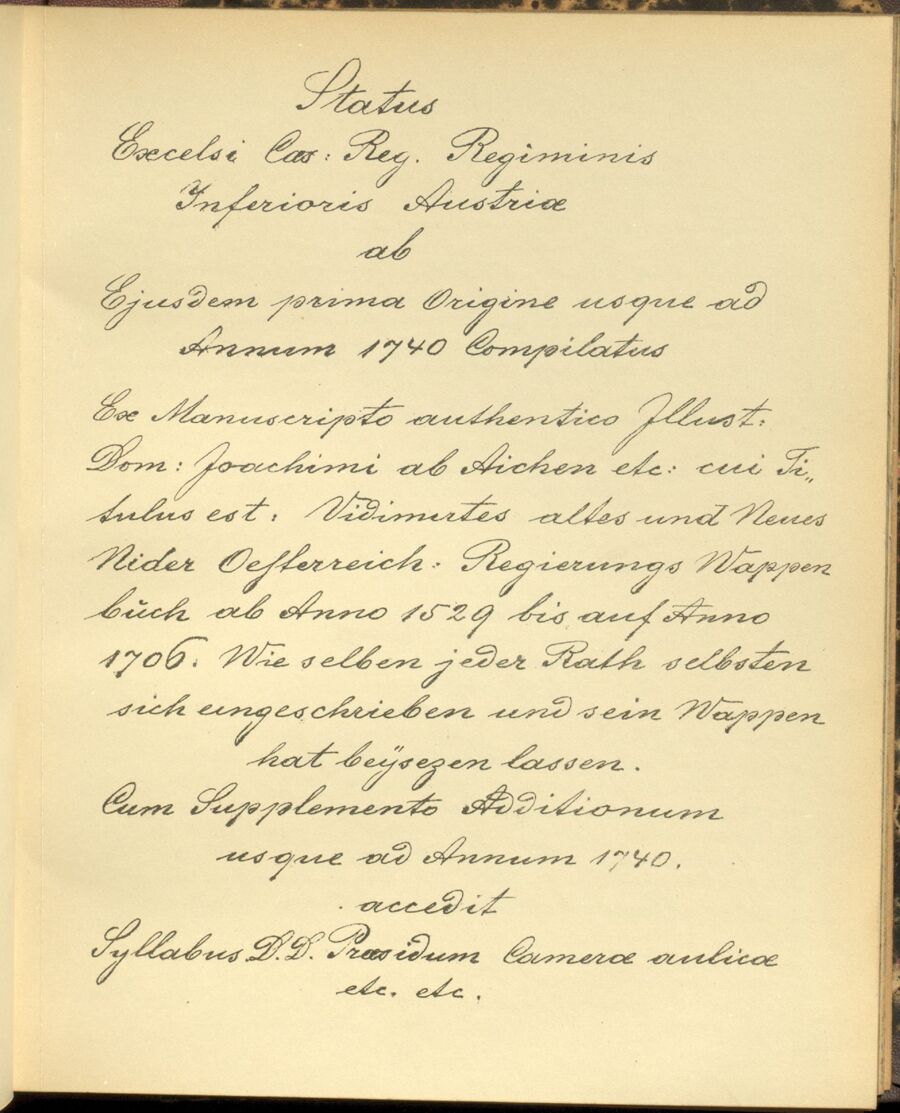 Status
Excelsi Cæs: Reg. Regiminis
Inferioris Austriæ
ab
Ejusdem prima Origine usque ad
Annum 1740 Compilatus
Ex Manuscripto authentico Jllust:
Dom: Joachimi ab Aichen etc: cui Ti„
tulus est: Vidimirtes altes und Neues
Nider Oesterreich: Regierungs Wappen
bŭch ab Anno 1529 bis auf Anno
1706. Wie selben jeder Rath selbsten
sich eingeschrieben und sein Wappen
hat beÿsezen lassen.
Cum Supplemento Additionum
usque ad Annum 1740.
accedit
Syllabus D.D. Præsidum Cameræ aulicæ
etc. etc.